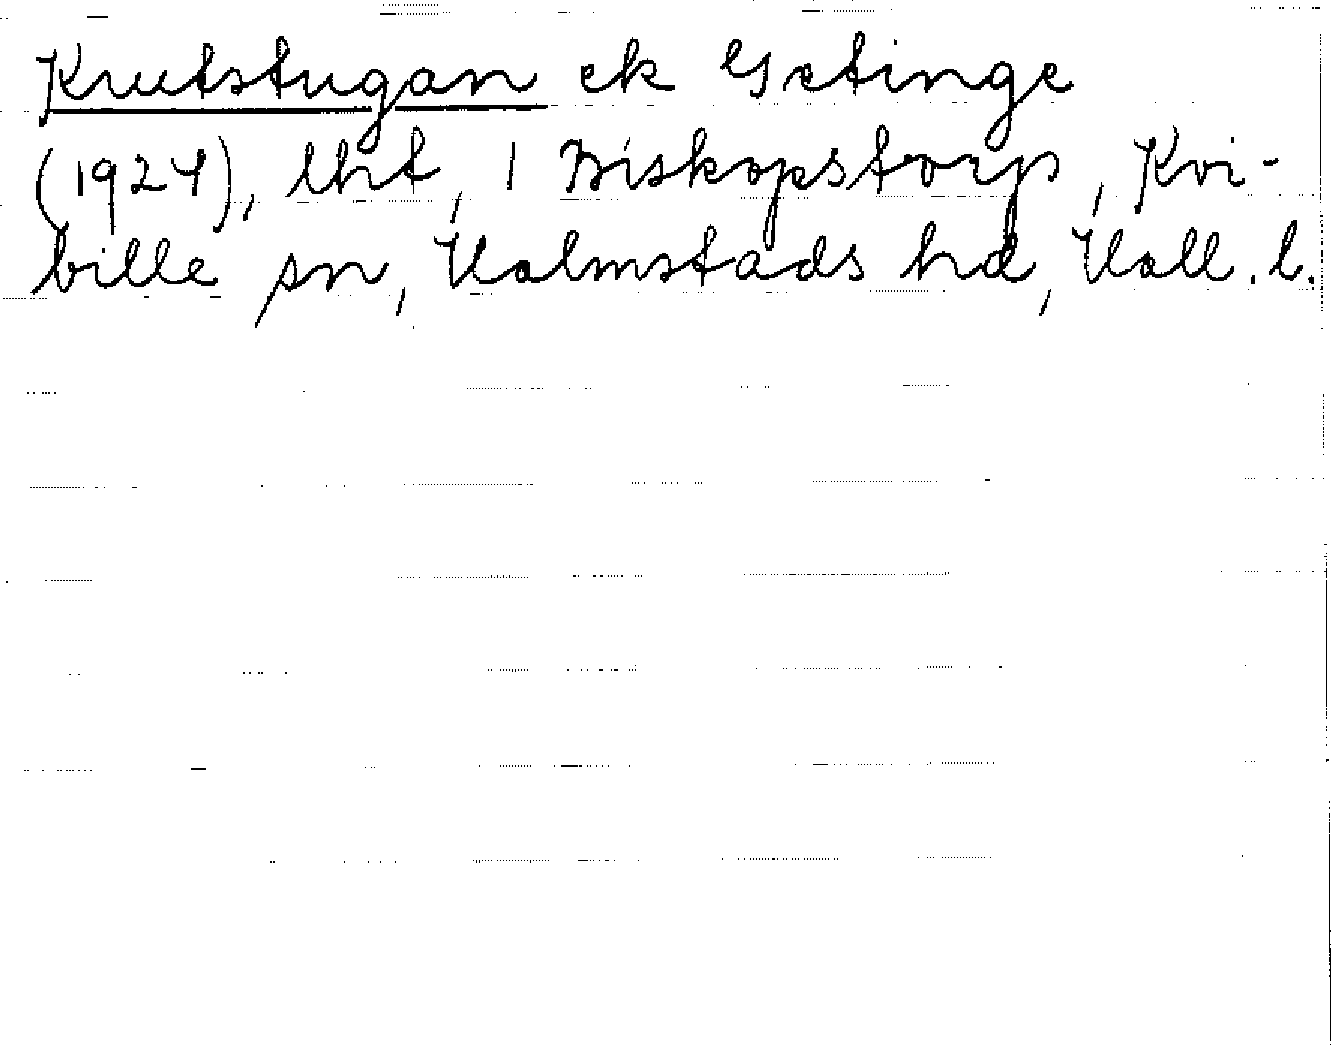 Krutstugan ek Getinge
(1924), lht, 1 Biskopstorp, Kvi-
bille sn, Halmstads hd, Hall. l.